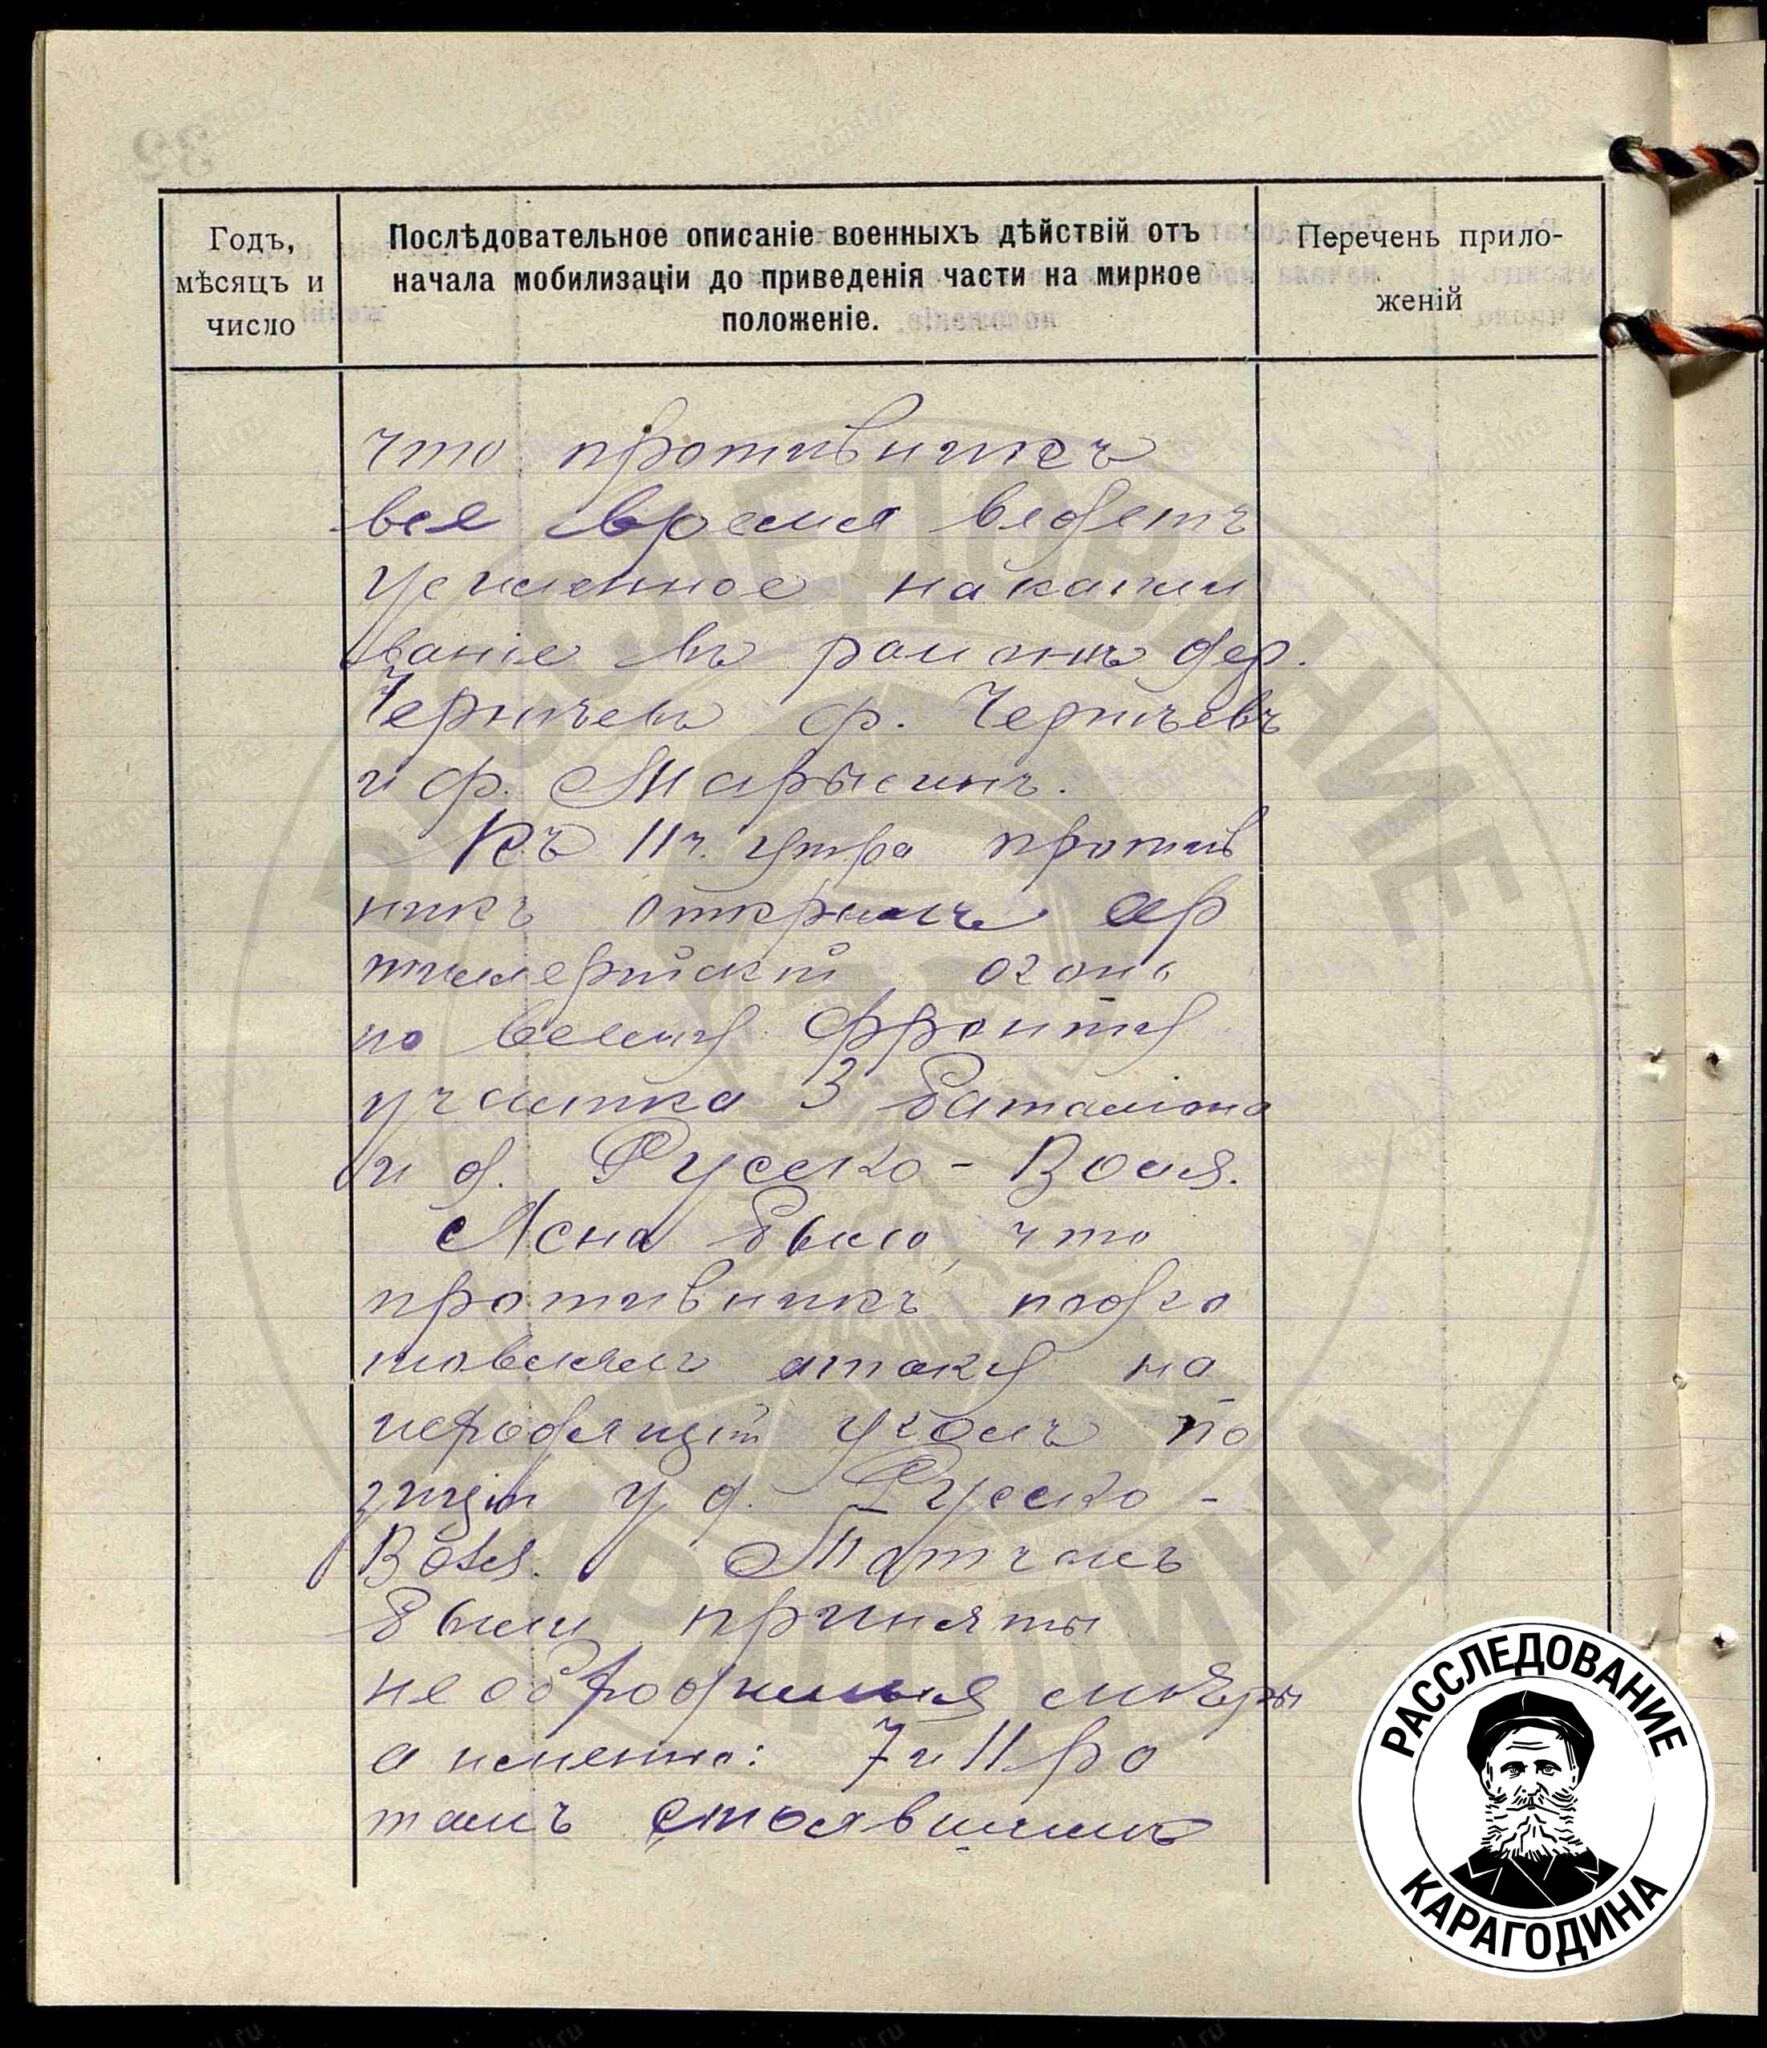 Годъ,
мѣсяцъ и
число
Послѣдовательное описаніе военныхъ дѣйствій отъ
начала мобилизаціи до приведенія части на мирное
положеніе.
Перечень прило-
женій
что противникъ
все время ведетъ
усиленное накапли
ваніе въ районѣ дер.
Чернѣевъ ф. Чернѣевъ
и ф. Марысинъ.
Къ 11 ч. утра против
никъ открылъ ар
тиллерійскій огонь
по всему фронту
участка 3 баталіона
и д. Русско-Воля.
Ясно было, что
противникъ подго
товлялъ атаку на
исходящій уголъ по
зиціи у д. Русско-
Воля.
были приняты
необходимыя мѣры
а именно: 7 и 11 ро
тамъ стоявшимъ
РАССЛЕДОВАНИЕ
КАРАГОДИНА
РАССЛЕДОВАНИЕ
КАРАГОДИНА